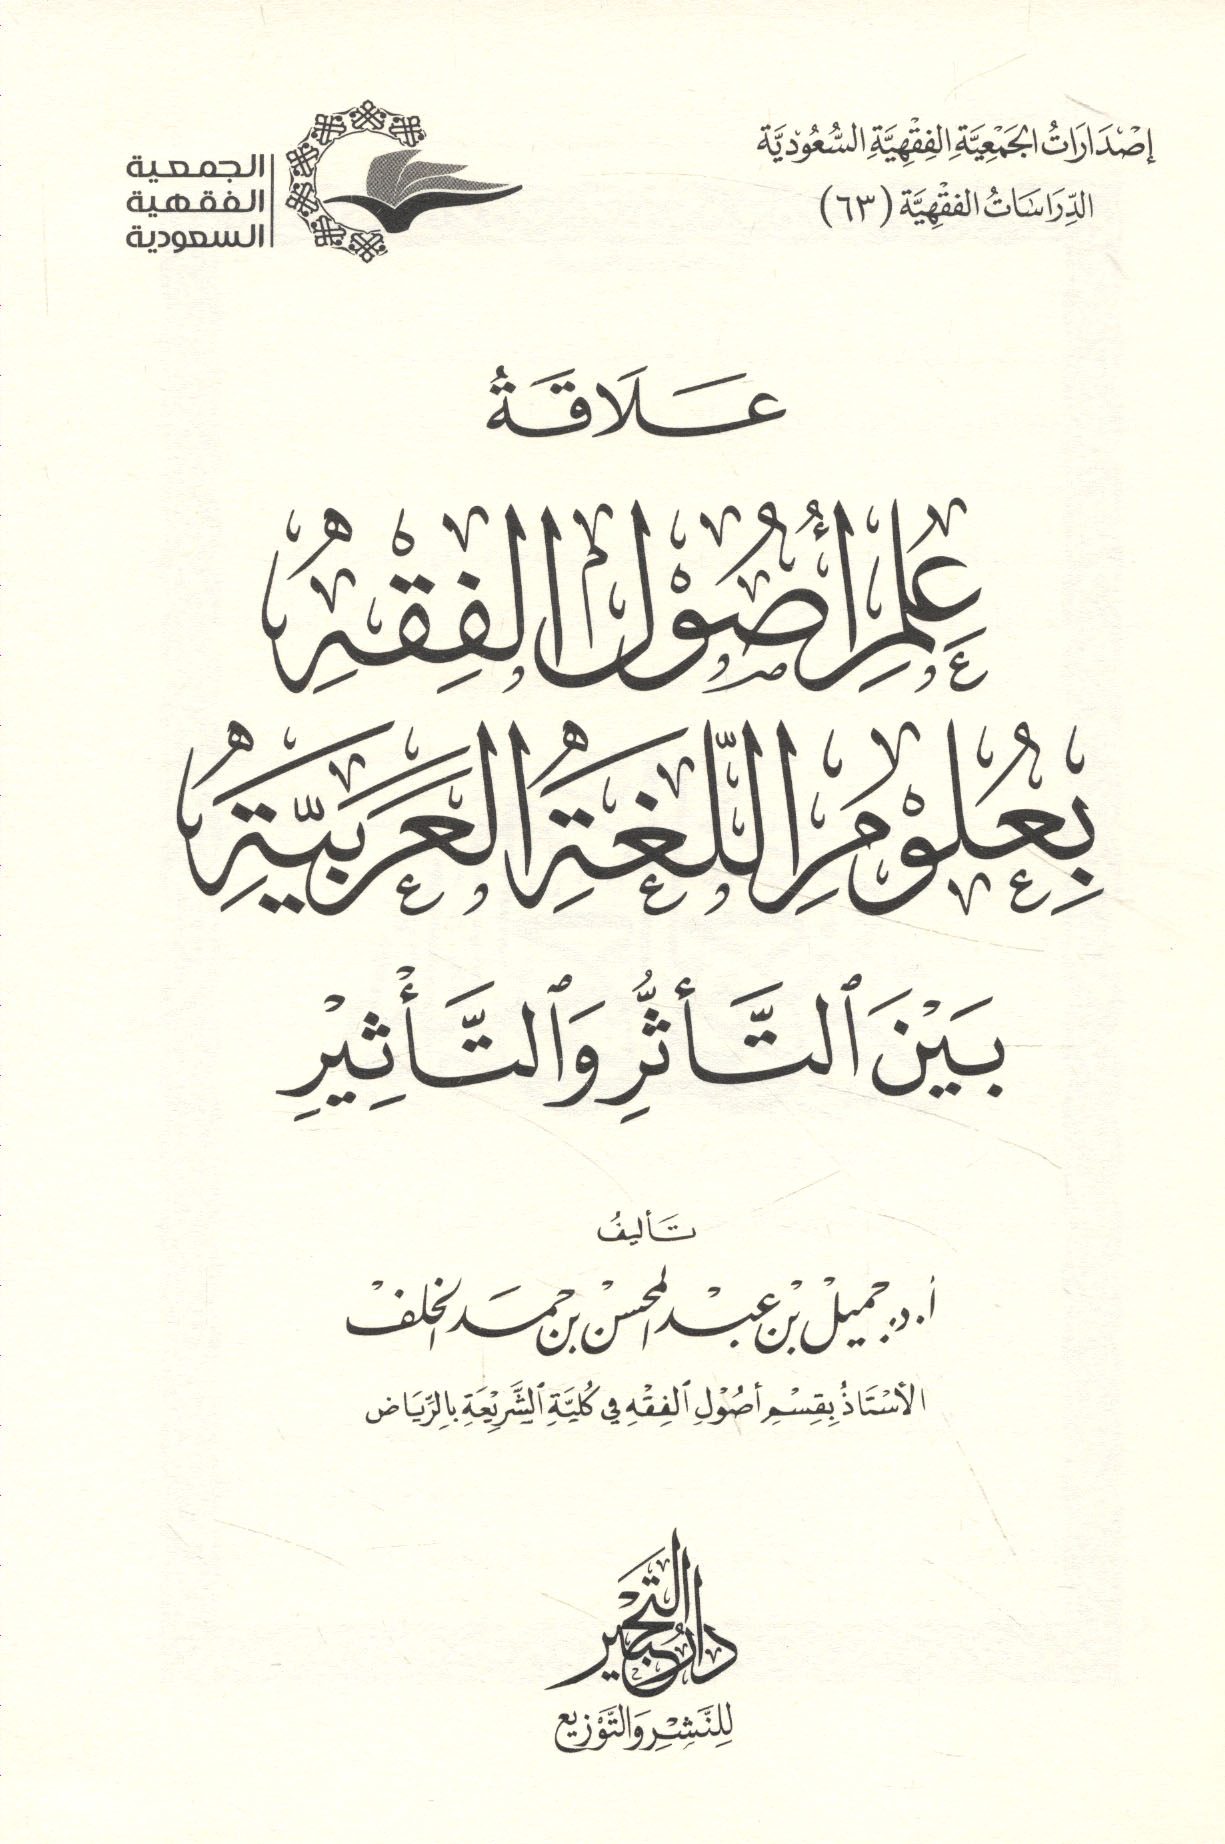 إِصْدَارَاتُ الجَمْعِيَّةِ الفِقْهِيَّةِ السُّعُودِيَّة
الدِّرَاسَاتُ الفِقْهِيَّة (٦٣)
الجمعية
الفقهية
السعودية
عَلَاقَةُ
عِلْمِ أُصُوْلِ الفِقْهِ
بِعُلُوْمِ اللُّغَةِ العَرَبِيَّةِ
بَيْنَ ٱلتَّأَثُّرِ وَٱلتَّأْثِيْرِ
تَأليفُ
أ. د. جميلْ بْن عبْد المحسنْ بن حمَد الخلفْ
الأسْتَاذُ بِقِسْمِ أصُوْلِ ٱلفِقْهِ فِي كُلِيَّةِ ٱلشَّرِيْعَةِ بِالرِّيَاض
دار التحبير
لِلنَّشْرِ وَالتَّوْزِيع